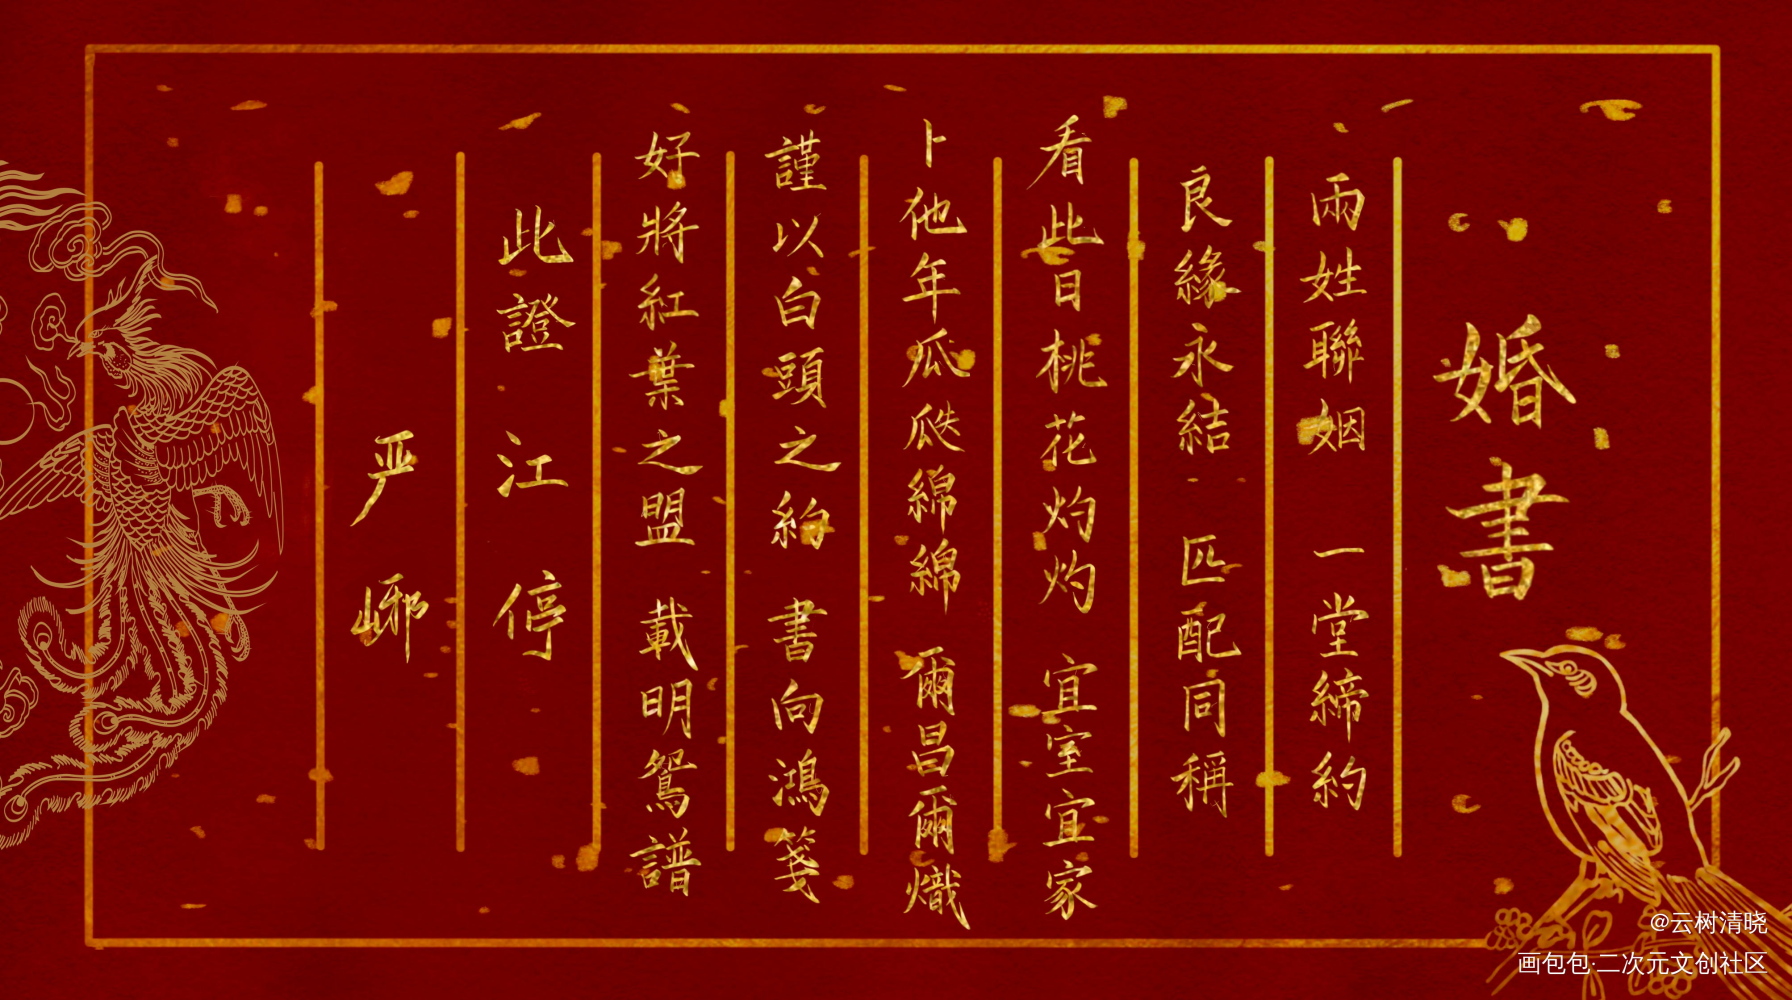 婚書
兩姓聯姻 一堂締約
良緣永結 匹配同稱
看此日桃花灼灼 宜室宜家
卜他年瓜瓞綿綿 爾昌爾熾
謹以白頭之約 書向鴻箋
好將紅葉之盟 載明鴛譜
此證 江停
严峫
@云树清晓
画包包·二次元文创社区